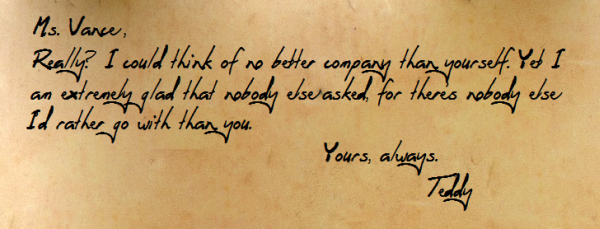 Ms. Vance,
Really? I could think of no better company than yourself. Yet I
am extremely glad that nobody else asked, for theres nobody else
I'd rather go with than you.
Yours, always.
Teddy